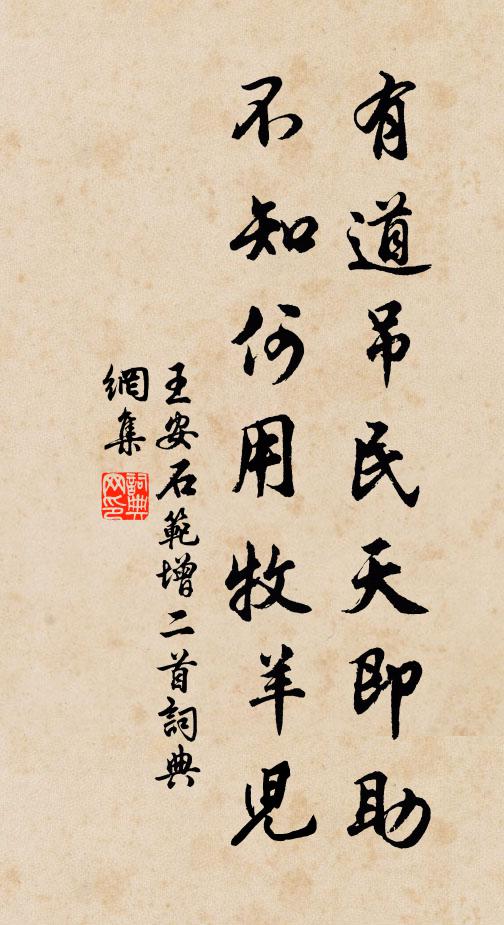 有道吊民天即助
不知何用牧羊児
王安石範增二首詞典
網集
詞典
网印